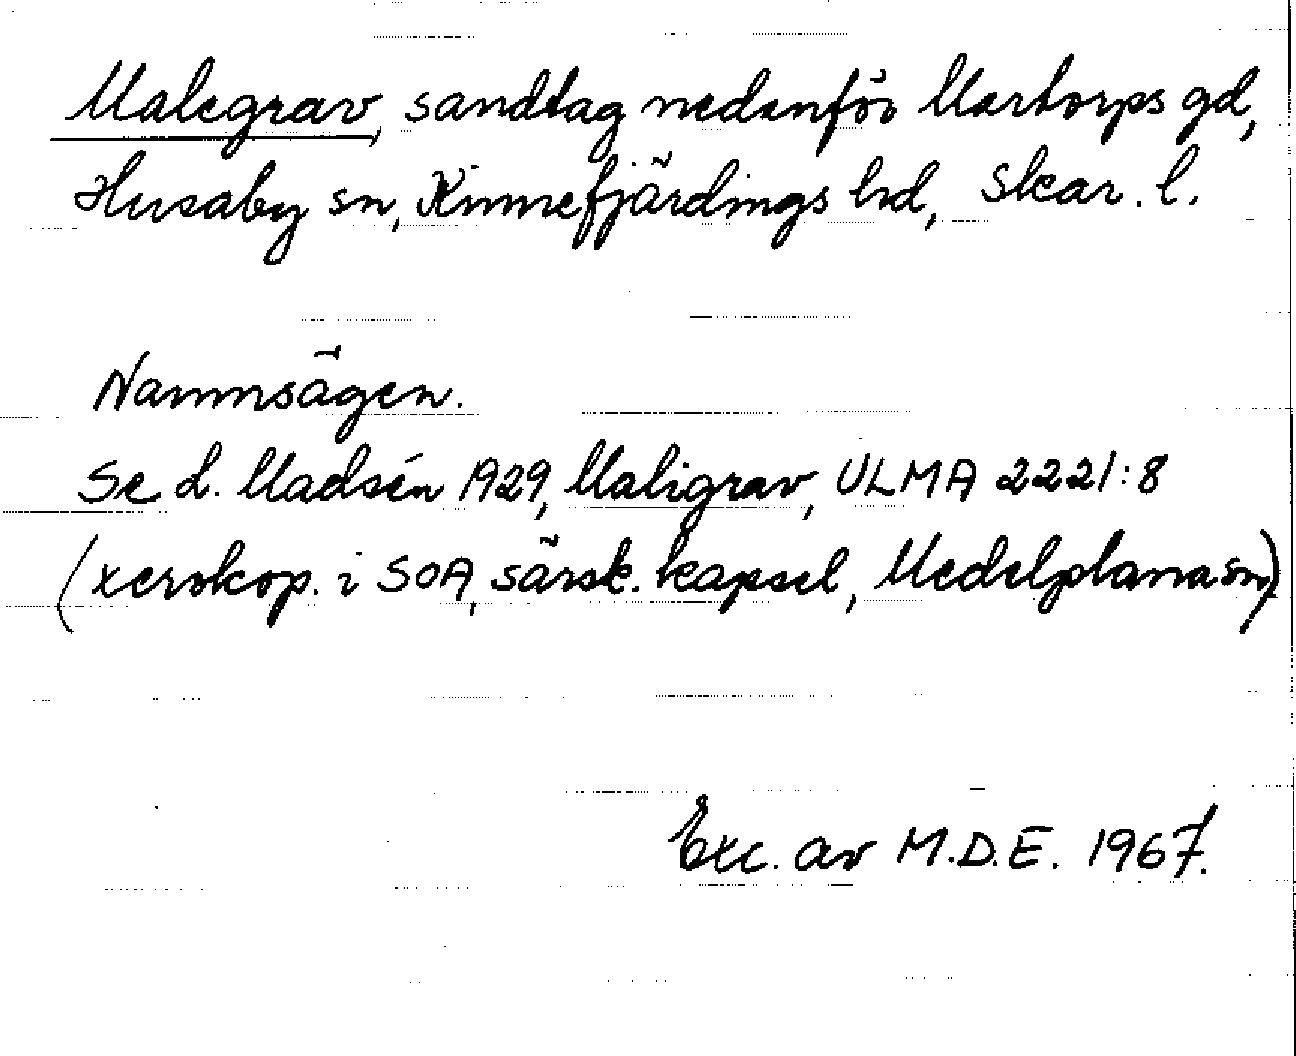 Malegrav, sandtag nedanför Martorps gd,
Husaby sn, Kinnefjärdings hd, Skar. l.
Namnsägen.
Se L. Madsén 1929, Maligrav, ULMA 2221:8
(xerokop. i SOA, särsk. kapsel, Medelplana sn)
Exc. av M.D.E. 1967.